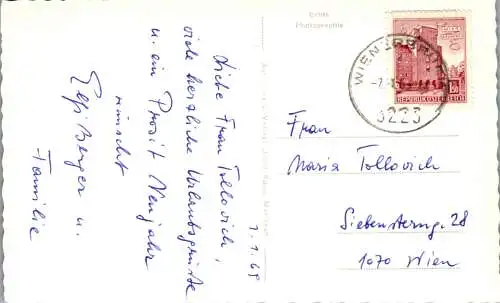 Echte
Photographie
1.1.69
Liebe Frau Tollovich,
viele herzliche Urlaubsgrüsse
u. ein Prosit Neujahr
wünscht
Berger u.
Familie
WIENERBR
3223
REPUBLIK ÖSTERREICH
Frau
Maria Tollovich
Siebensterng. 28
1070 Wien